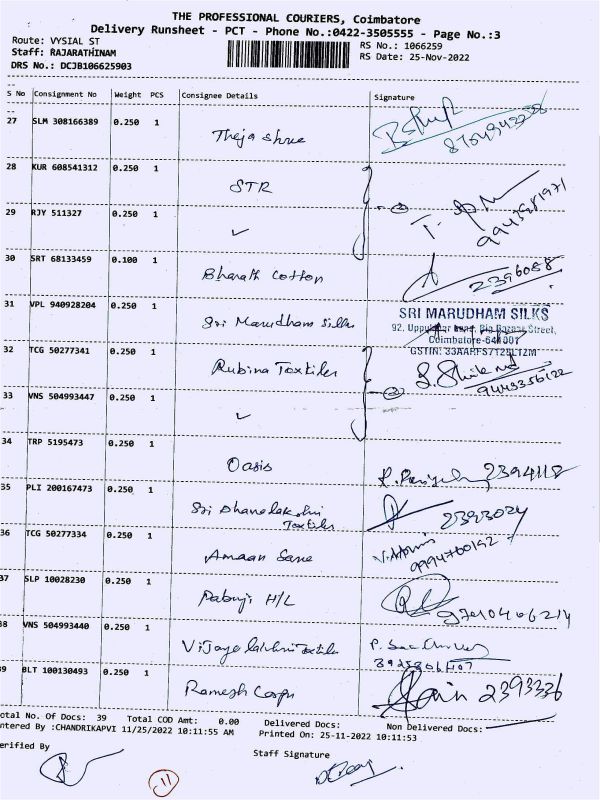 THE PROFESSIONAL COURIERS, Coimbatore
Delivery Runsheet - PCT - Phone No.:0422-3505555 - Page No.:3
Route: VYSIAL ST
RS No.: 1066259
Staff: RAJARATHINAM
RS Date: 25-Nov-2022
DRS No.: DCJB106625903
S No Consignment No Weight PCS Consignee Details Signature
27 SLM 308166389 0.250 1
Theja Shree
28 KUR 608541312 0.250 1
STR
29 RJY 511327 0.250 1
✓
30 SRT 68133459 0.100 1
Bharath Cotton 2396088
31 VPL 940928204 0.250 1
Sri Marudham Silks
SRI MARUDHAM SILKS
Street,
Coimbatore-641001
32 TCG 50277341 0.250 1
Rubina Textiles
9443356122
33 VNS 504993447 0.250 1
✓
34 TRP 5195473 0.250 1
Oasis 2394118
35 PLI 200167473 0.250 1
Sri Dhanalakshmi
Textiles 2393024
36 TCG 50277334 0.250 1
Amaan
37 SLP 10028230 0.250 1
H/L
38 VNS 504993440 0.250 1
Vijayalakshmi Textiles
39 BLT 100130493 0.250 1
Ramesh Corpn 2393336
Total No. Of Docs: 39 Total COD Amt: 0.00 Delivered Docs: Non Delivered Docs:
Entered By :CHANDRIKAPVI 11/25/2022 10:11:55 AM Printed On: 25-11-2022 10:11:53
Verified By Staff Signature
11